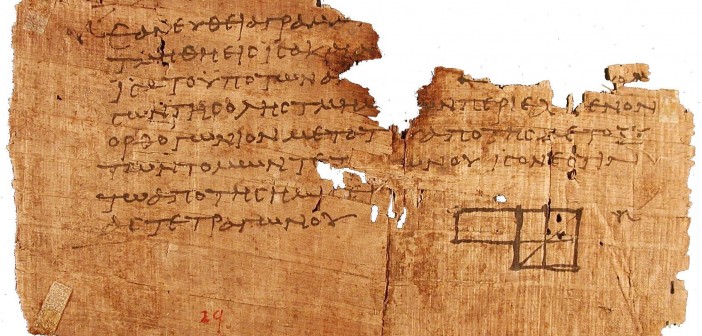 ΕΑΝΕΥΘΕΙΑΓΡΑΜΜ
ΤΜΗΘΗΕΙϹΙϹΑΚΑΙΑ
ΙϹΑΤΟΥΠΟΤΩΝΑ
ϹΩΝΤΗϹΟΛΗϹΤΜΗΜ ΩΝΠΕΡΙΕΧ ΜΕΝΟΝ
ΟΡΘΟΓΩΝΙΟΝΜΕΤΑΤ ΑΠΟΤΗϹΜΕΤΟΞΥ
ΤΩΝΤΟΜΩΝΤΕΤ ΩΝΟΥΙϹΟΝΕϹΤΙΝ
ΤΩΑΠΟΤΗϹΗΜΙ
ΑϹΤΕΤΡΑΓΩΝΟΥ
29